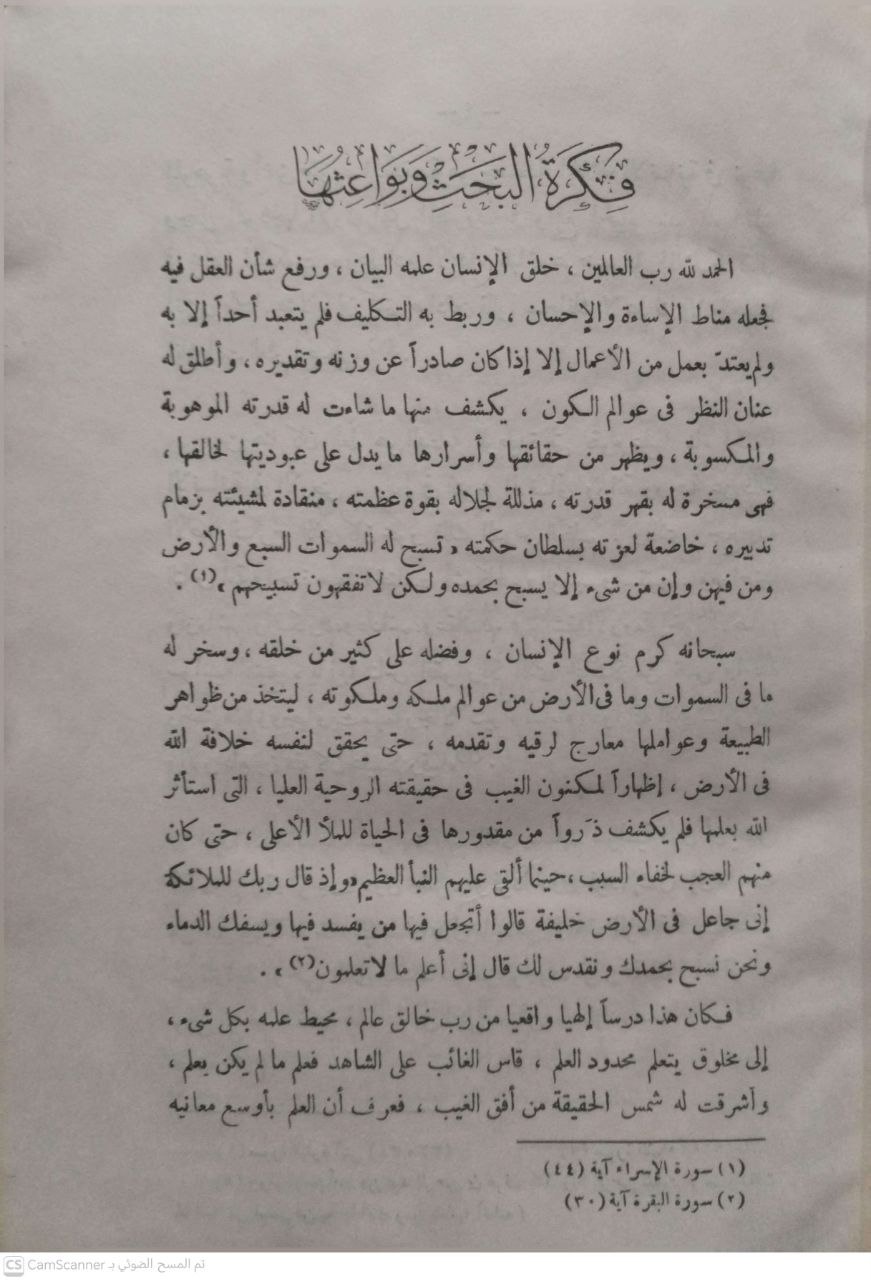 فِكْرَةُ البَحَثِ وَبَوَاعِثُهَا
الحمد لله رب العالمين ، خلق الإنسان علمه البيان ، ورفع شأن العقل فيه
فجعله مناط الإساءة والإحسان ، وربط به التكليف فلم يتعبد أحداً إلا به
ولم يعتدّ بعمل من الأعمال إلا إذا كان صادراً عن وزنه وتقديره ، وأطلق له
عنان النظر فى عوالم الكون ، يكشف منها ما شاءت له قدرته الموهوبة
والمكسوبة ، ويظهر من حقائقها وأسرارها ما يدل على عبوديتها لخالقها ،
فهى مسخرة له بقهر قدرته ، مذللة لجلاله بقوة عظمته ، منقادة لمشيئته بزمام
تدبيره ، خاضعة لعزته بسلطان حكمته « تسبح له السموات السبع والأرض
ومن فيهن وإن من شىء إلا يسبح بحمده ولكن لا تفقهون تسبيحهم »(١) .
سبحانه كرم نوع الإنسان ، وفضله على كثير من خلقه ، وسخر له
ما فى السموات وما فى الأرض من عوالم ملكه وملكوته ، ليتخذ من ظواهر
الطبيعة وعواملها معارج لرقيه وتقدمه ، حتى يحقق لنفسه خلافة الله
فى الأرض ، إظهاراً لمكنون الغيب فى حقيقته الروحية العليا ، التى استأثر
الله بعلمها فلم يكشف ذَرواً من مقدورها فى الحياة للملأ الأعلى ، حتى كان
منهم العجب لخفاء السبب ، حينما ألقى عليهم النبأ العظيم « وإذ قال ربك للملائكة
إنى جاعل فى الأرض خليفة قالوا أتجعل فيها من يفسد فيها ويسفك الدماء
ونحن نسبح بحمدك ونقدس لك قال إنى أعلم ما لا تعلمون(٢) » .
فكان هذا درساً إلهيا واقعيا من رب خالق عالم ، محيط علمه بكل شىء ،
إلى مخلوق يتعلم محدود العلم ، قاس الغائب على الشاهد فعلم ما لم يكن يعلم ،
وأشرقت له شمس الحقيقة من أفق الغيب ، فعرف أن العلم بأوسع معانيه
(١) سورة الإسراء آية (٤٤)
(٢) سورة البقرة آية (٣٠)
CS CamScanner تم المسح الضوئي بـ